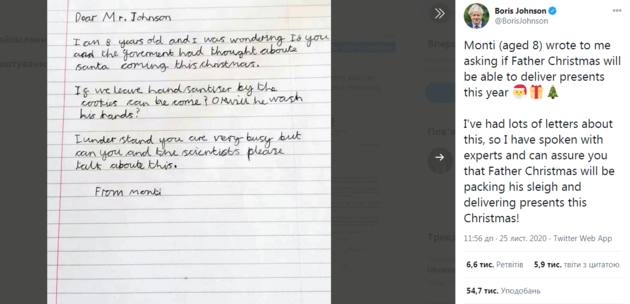 Dear Mr. Johnson
I am 8 years old and I was wondering Is you
and the goverment had thought aboute
santa coming this christmas.
If we leave hand sanitiser by the
cookies can be come? Or will he wash
his hands?
I under stand you are very busy but
can you and the scientists please
talk about this.
From monti
Boris Johnson
@BorisJohnson
Monti (aged 8) wrote to me
asking if Father Christmas will
be able to deliver presents
this year 🎅🎁🎄
I've had lots of letters about
this, so I have spoken with
experts and can assure you
that Father Christmas will be
packing his sleigh and
delivering presents this
Christmas!
11:56 дп · 25 лист. 2020 · Twitter Web App
6,6 тис. Ретвітів 5,9 тис. твіти з цитатою
54,7 тис. Уподобань